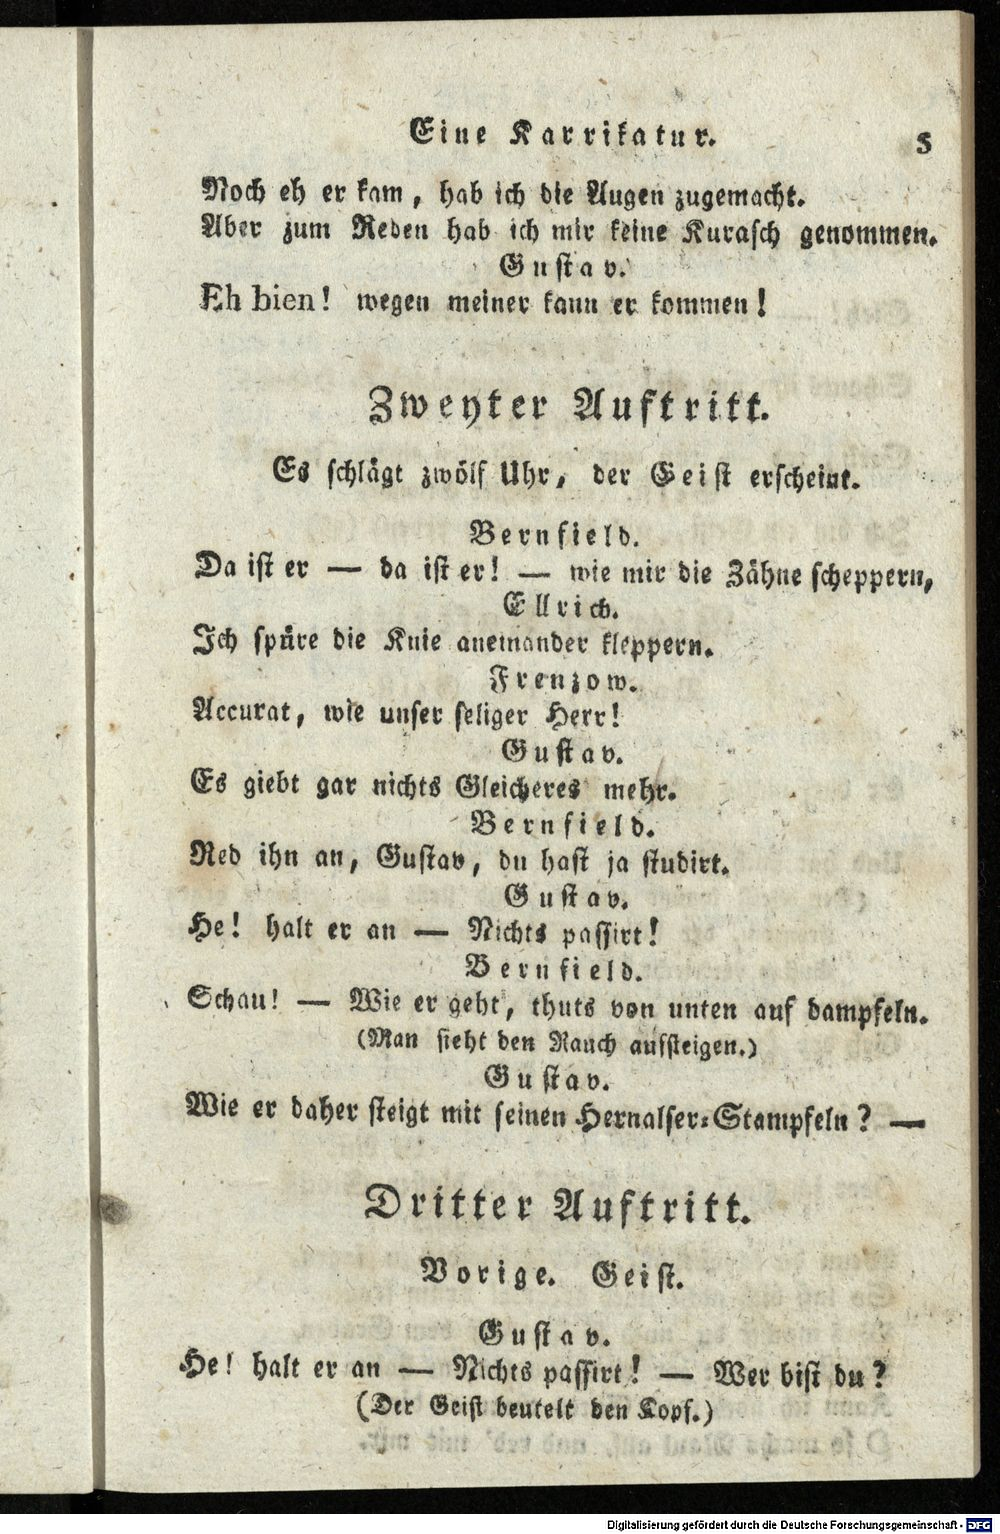 Eine Karrikatur.
5
Noch eh er kam, hab ich die Augen zugemacht.
Aber zum Reden hab ich mir keine Kurasch genommen.
Gustav.
Eh bien! wegen meiner kann er kommen!
Zweyter Auftritt.
Es schlägt zwölf Uhr, der Geist erscheint.
Bernfield.
Da ist er — da ist er! — wie mir die Zähne scheppern,
Ellrich.
Ich spüre die Knie aneinander kleppern.
Frenzow.
Accurat, wie unser seliger Herr!
Gustav.
Es giebt gar nichts Gleicheres mehr.
Bernfield.
Red ihn an, Gustav, du hast ja studirt.
Gustav.
He! halt er an — Nichts passirt!
Bernfield.
Schau! — Wie er geht, thuts von unten auf dampfeln.
(Man sieht den Rauch aufsteigen.)
Gustav.
Wie er daher steigt mit seinen Hernalser-Stampfeln? —
Dritter Auftritt.
Vorige. Geist.
Gustav.
He! halt er an — Nichts passirt! — Wer bist du?
(Der Geist beutelt den Kopf.)
Digitalisierung gefördert durch die Deutsche Forschungsgemeinschaft - DFG